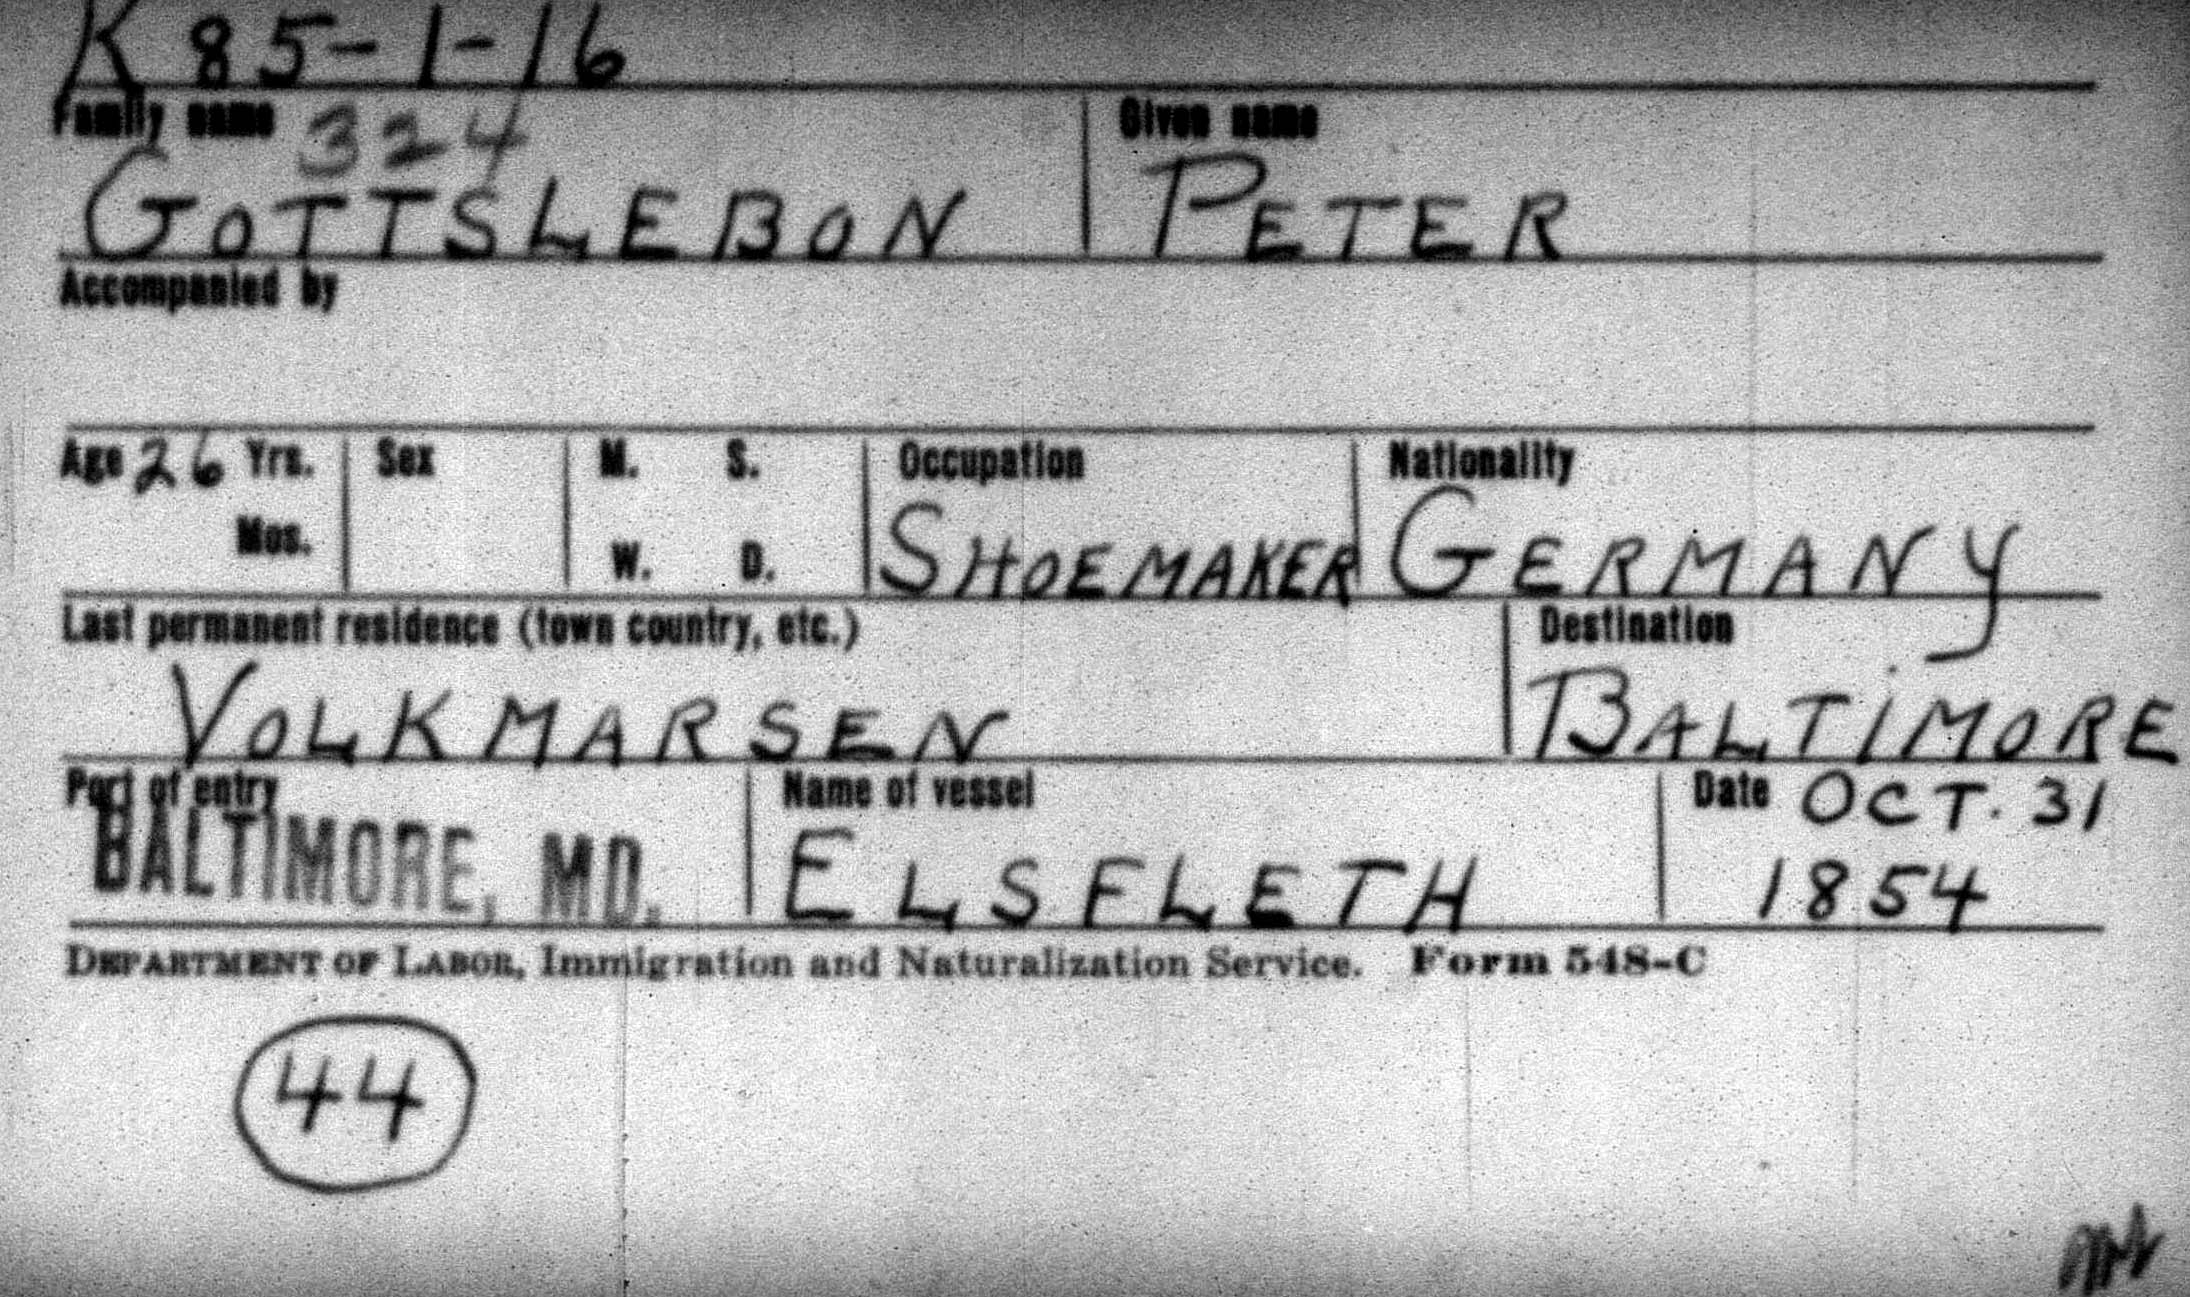 K 85-1-16
Family name 324 Given name
GOTTSLEBON PETER
Accompanied by
Age 26 Yrs. Sex M. S. Occupation Nationality
Mos. W. D. SHOEMAKER GERMANY
Last permanent residence (town country, etc.) Destination
VOLKMARSEN BALTIMORE
Port of entry Name of vessel Date OCT. 31
BALTIMORE, MD. ELSFLETH 1854
DEPARTMENT OF LABOR, Immigration and Naturalization Service. Form 548-C
44